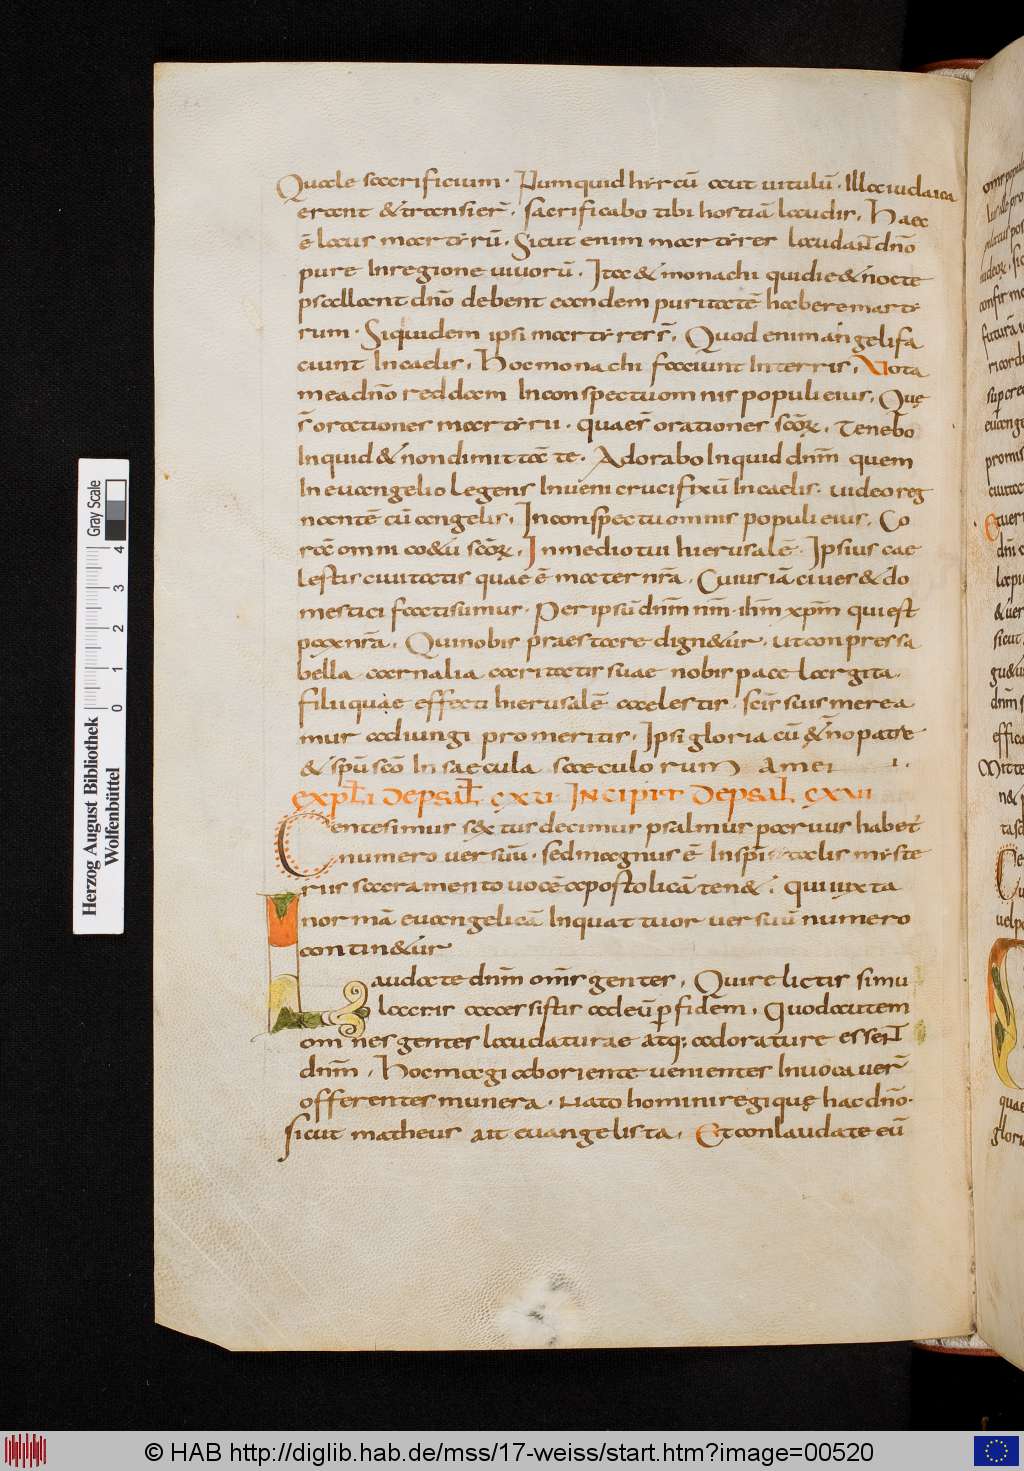 Quale sacrificium. Numquid hyrcū aut uitulū. Illa iudaica
erant & transier̄. sacrificabo tibi hostiā laudis. Haec
ē locus martyrū. Sicut enim martyres laudaN̄ dn̄o
pure In regione uiuorū. Ita & monachi qui die & nocte
psallant dn̄o debent eandem puritatē habere marty
rum. Siquidem ipsi martyres s̄. Quod enim angeli fa
ciunt In caelis. Hoc monachi faciunt In terris. Vota
mea dn̄o reddam In conspectu omnis populi eius. Quę
s̄ orationes martyrū. quae s̄ orationes scōꝝ. Tenebo
Inquid & non dimittā te. Adorabo Inquid dn̄m quem
In euangelio legens Inueni crucifixū In caelis. uideo reg
nantē cū angelis. In conspectu omnis populi eius. Co
rā omni co&u scōꝝ. In medio tui hierusalē. Ipsius cae
lestis ciuitatis quae ē mater nr̄a. Cuius iā ciues & do
mestici facti sumus. Per ipsū dn̄m nr̄m ihm̄ xp̄m qui est
pax nr̄a. Qui nobis praestare dign&ur. ut conpressa
bella carnalia caritatis suae nobis pace largita.
filii quae effecti hierusalē caelestis. sc̄is suis merea
mur adiungi pro meritis. Ipsi gloria cū &̄no patre
& sp̄u scō In saecula saeculorum amen
expl̄i de psal̄ cxvi Incipit de psal̄ cxvii
Centesimus s&tus decimus psalmus paruus habet
numero uersuū. sed magnus ē In sp̄italis myste
riis sacramento uocē apostolicā ten&. qui iuxta
normā euangelicā In quattuor uersuū numero
contin&ur
Laudate dn̄m om̄s gentes. Qui relictis simu
lacris accersistis ad eū ꝑ fidem. Quod autem
omnes gentes laudaturae atq; adorature esseN̄
dn̄m. Hoc magi ab oriente uenientes Inuocauer̄
offerentes munera. Nato homini regi quę hac dn̄o.
sicut matheus ait euangelista. Et conlaudate eū
Herzog August Bibliothek
Wolfenbüttel
Gray Scale
0 1 2 3 4
© HAB http://diglib.hab.de/mss/17-weiss/start.htm?image=00520